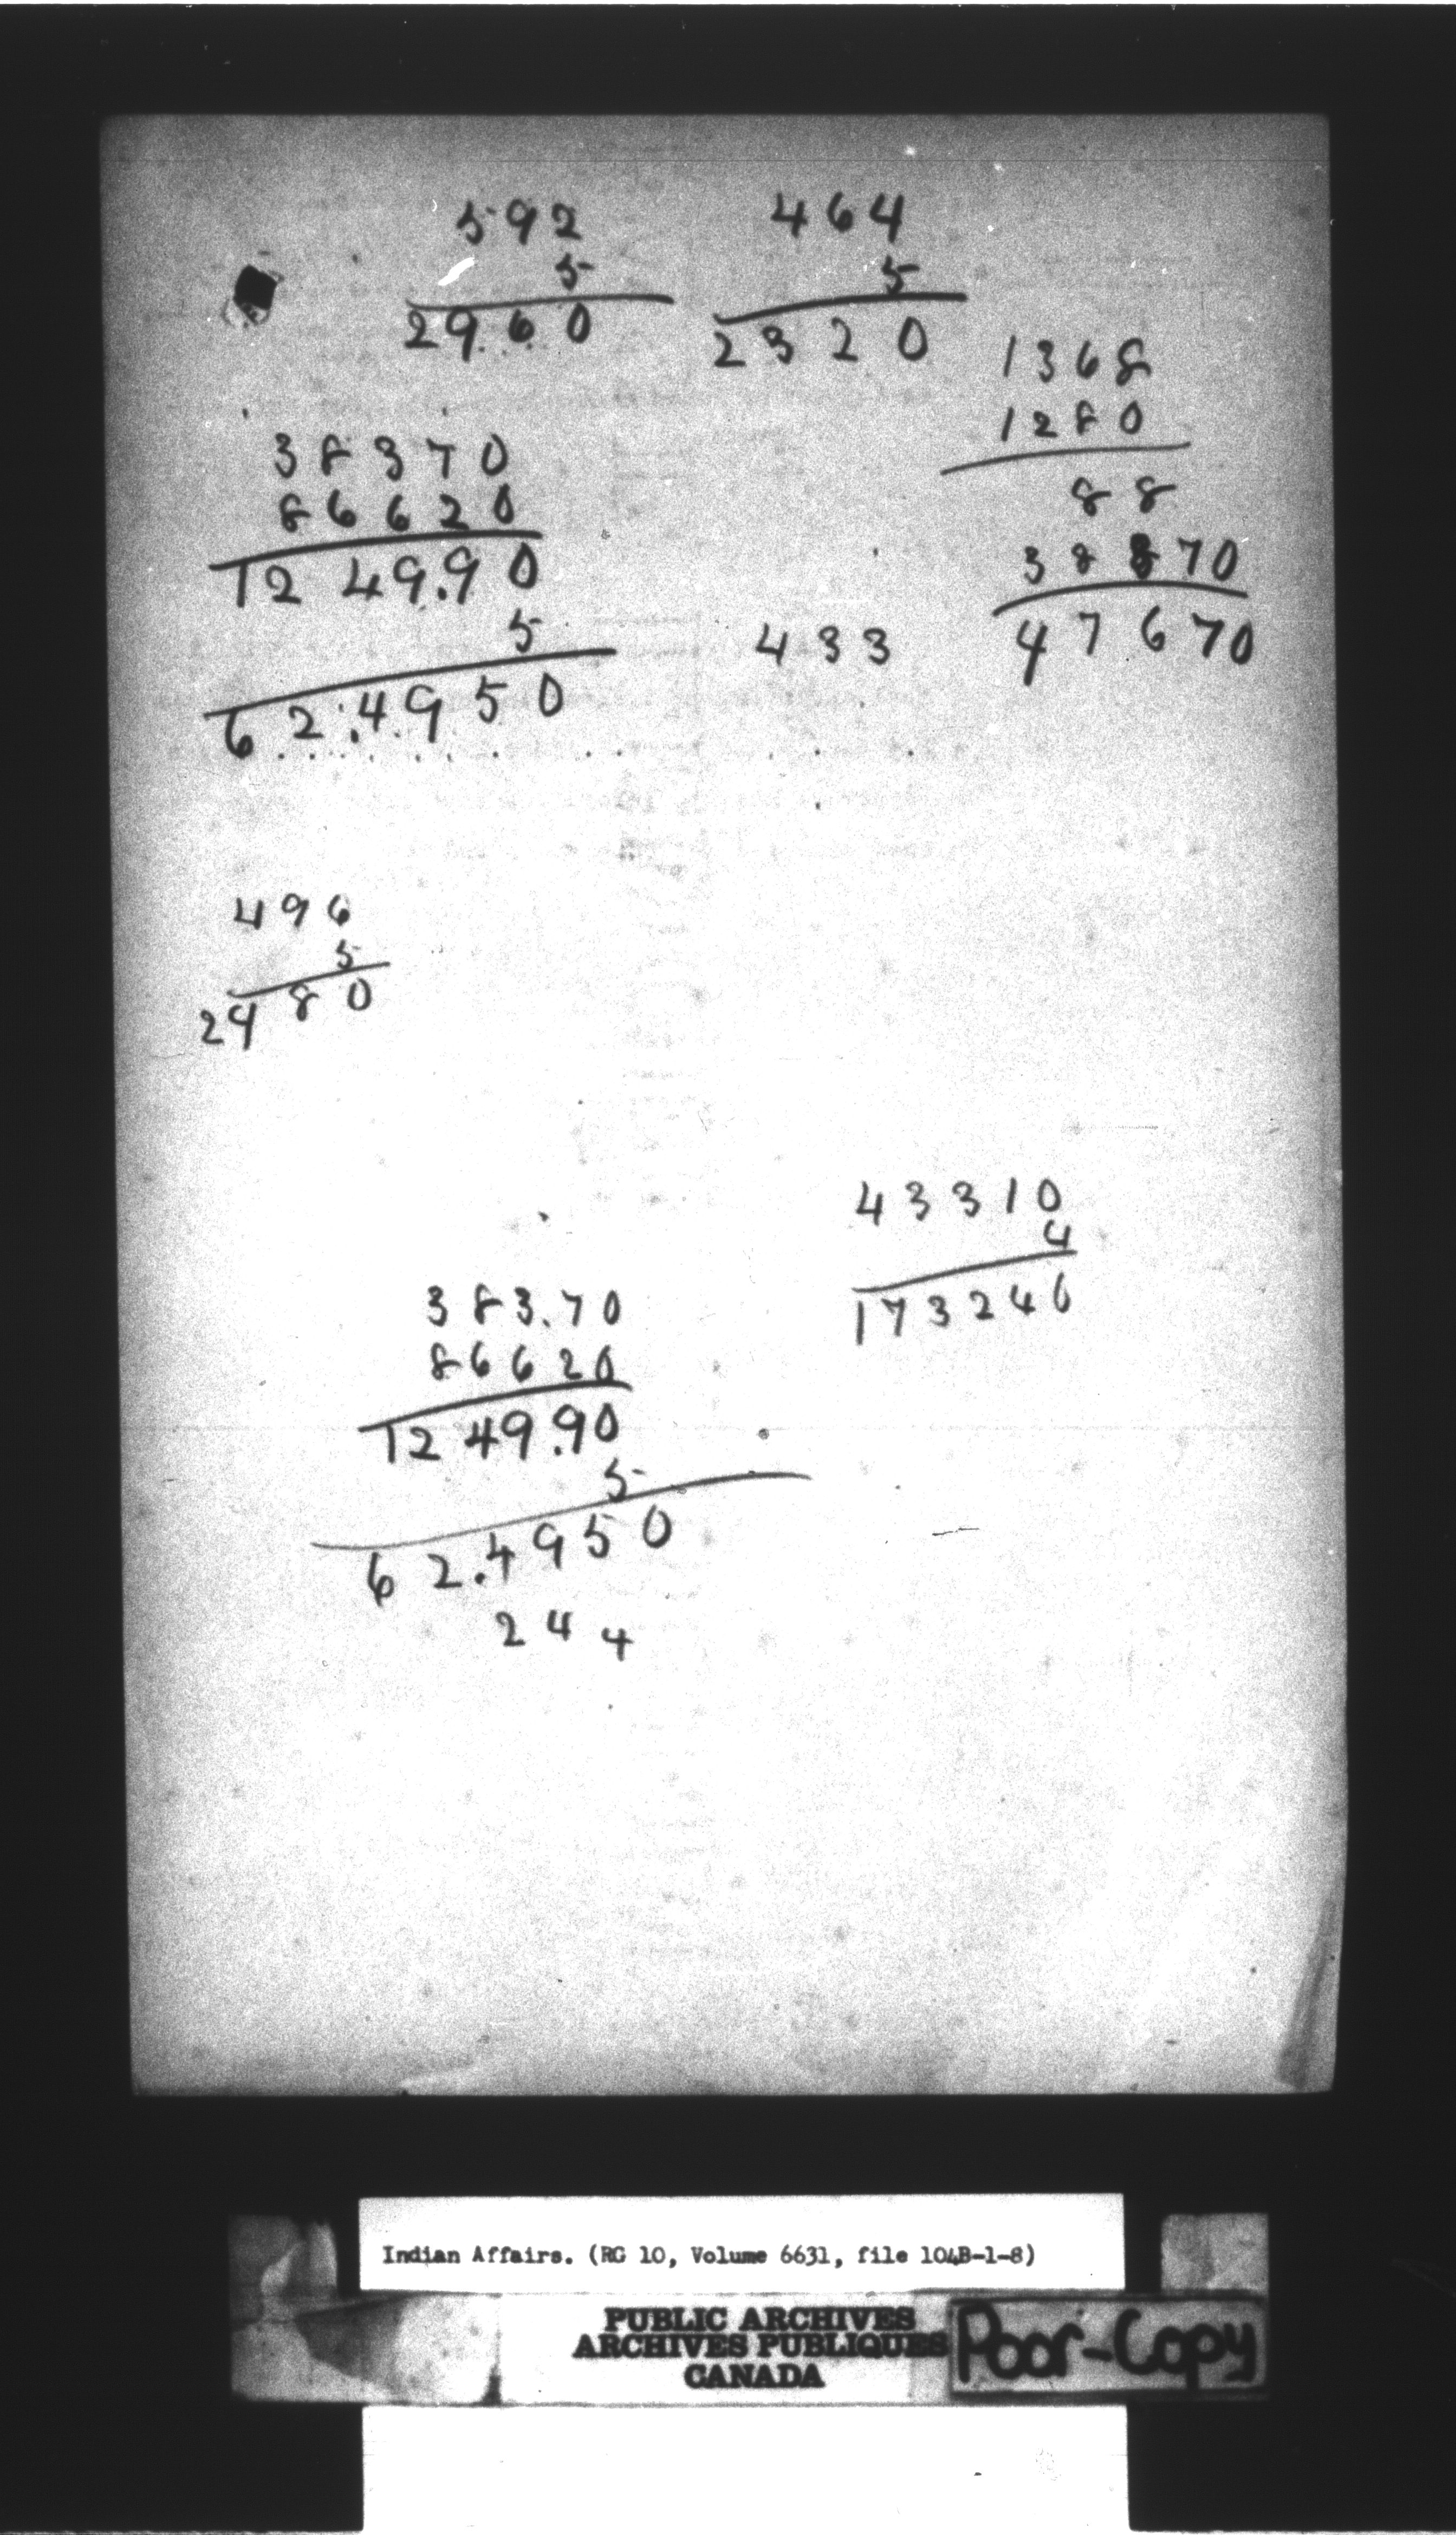 592
5
2960
464
5
2320
1368
1280
88
38870
47670
38370
86620
1249.90
5
62.4950
433
496
5
2480
43310
4
173240
383.70
86620
1249.90
5
62.4950
244
Indian Affairs. (RG 10, Volume 6631, file 104B-1-8)
PUBLIC ARCHIVES
ARCHIVES PUBLIQUES
CANADA
Poor-Copy